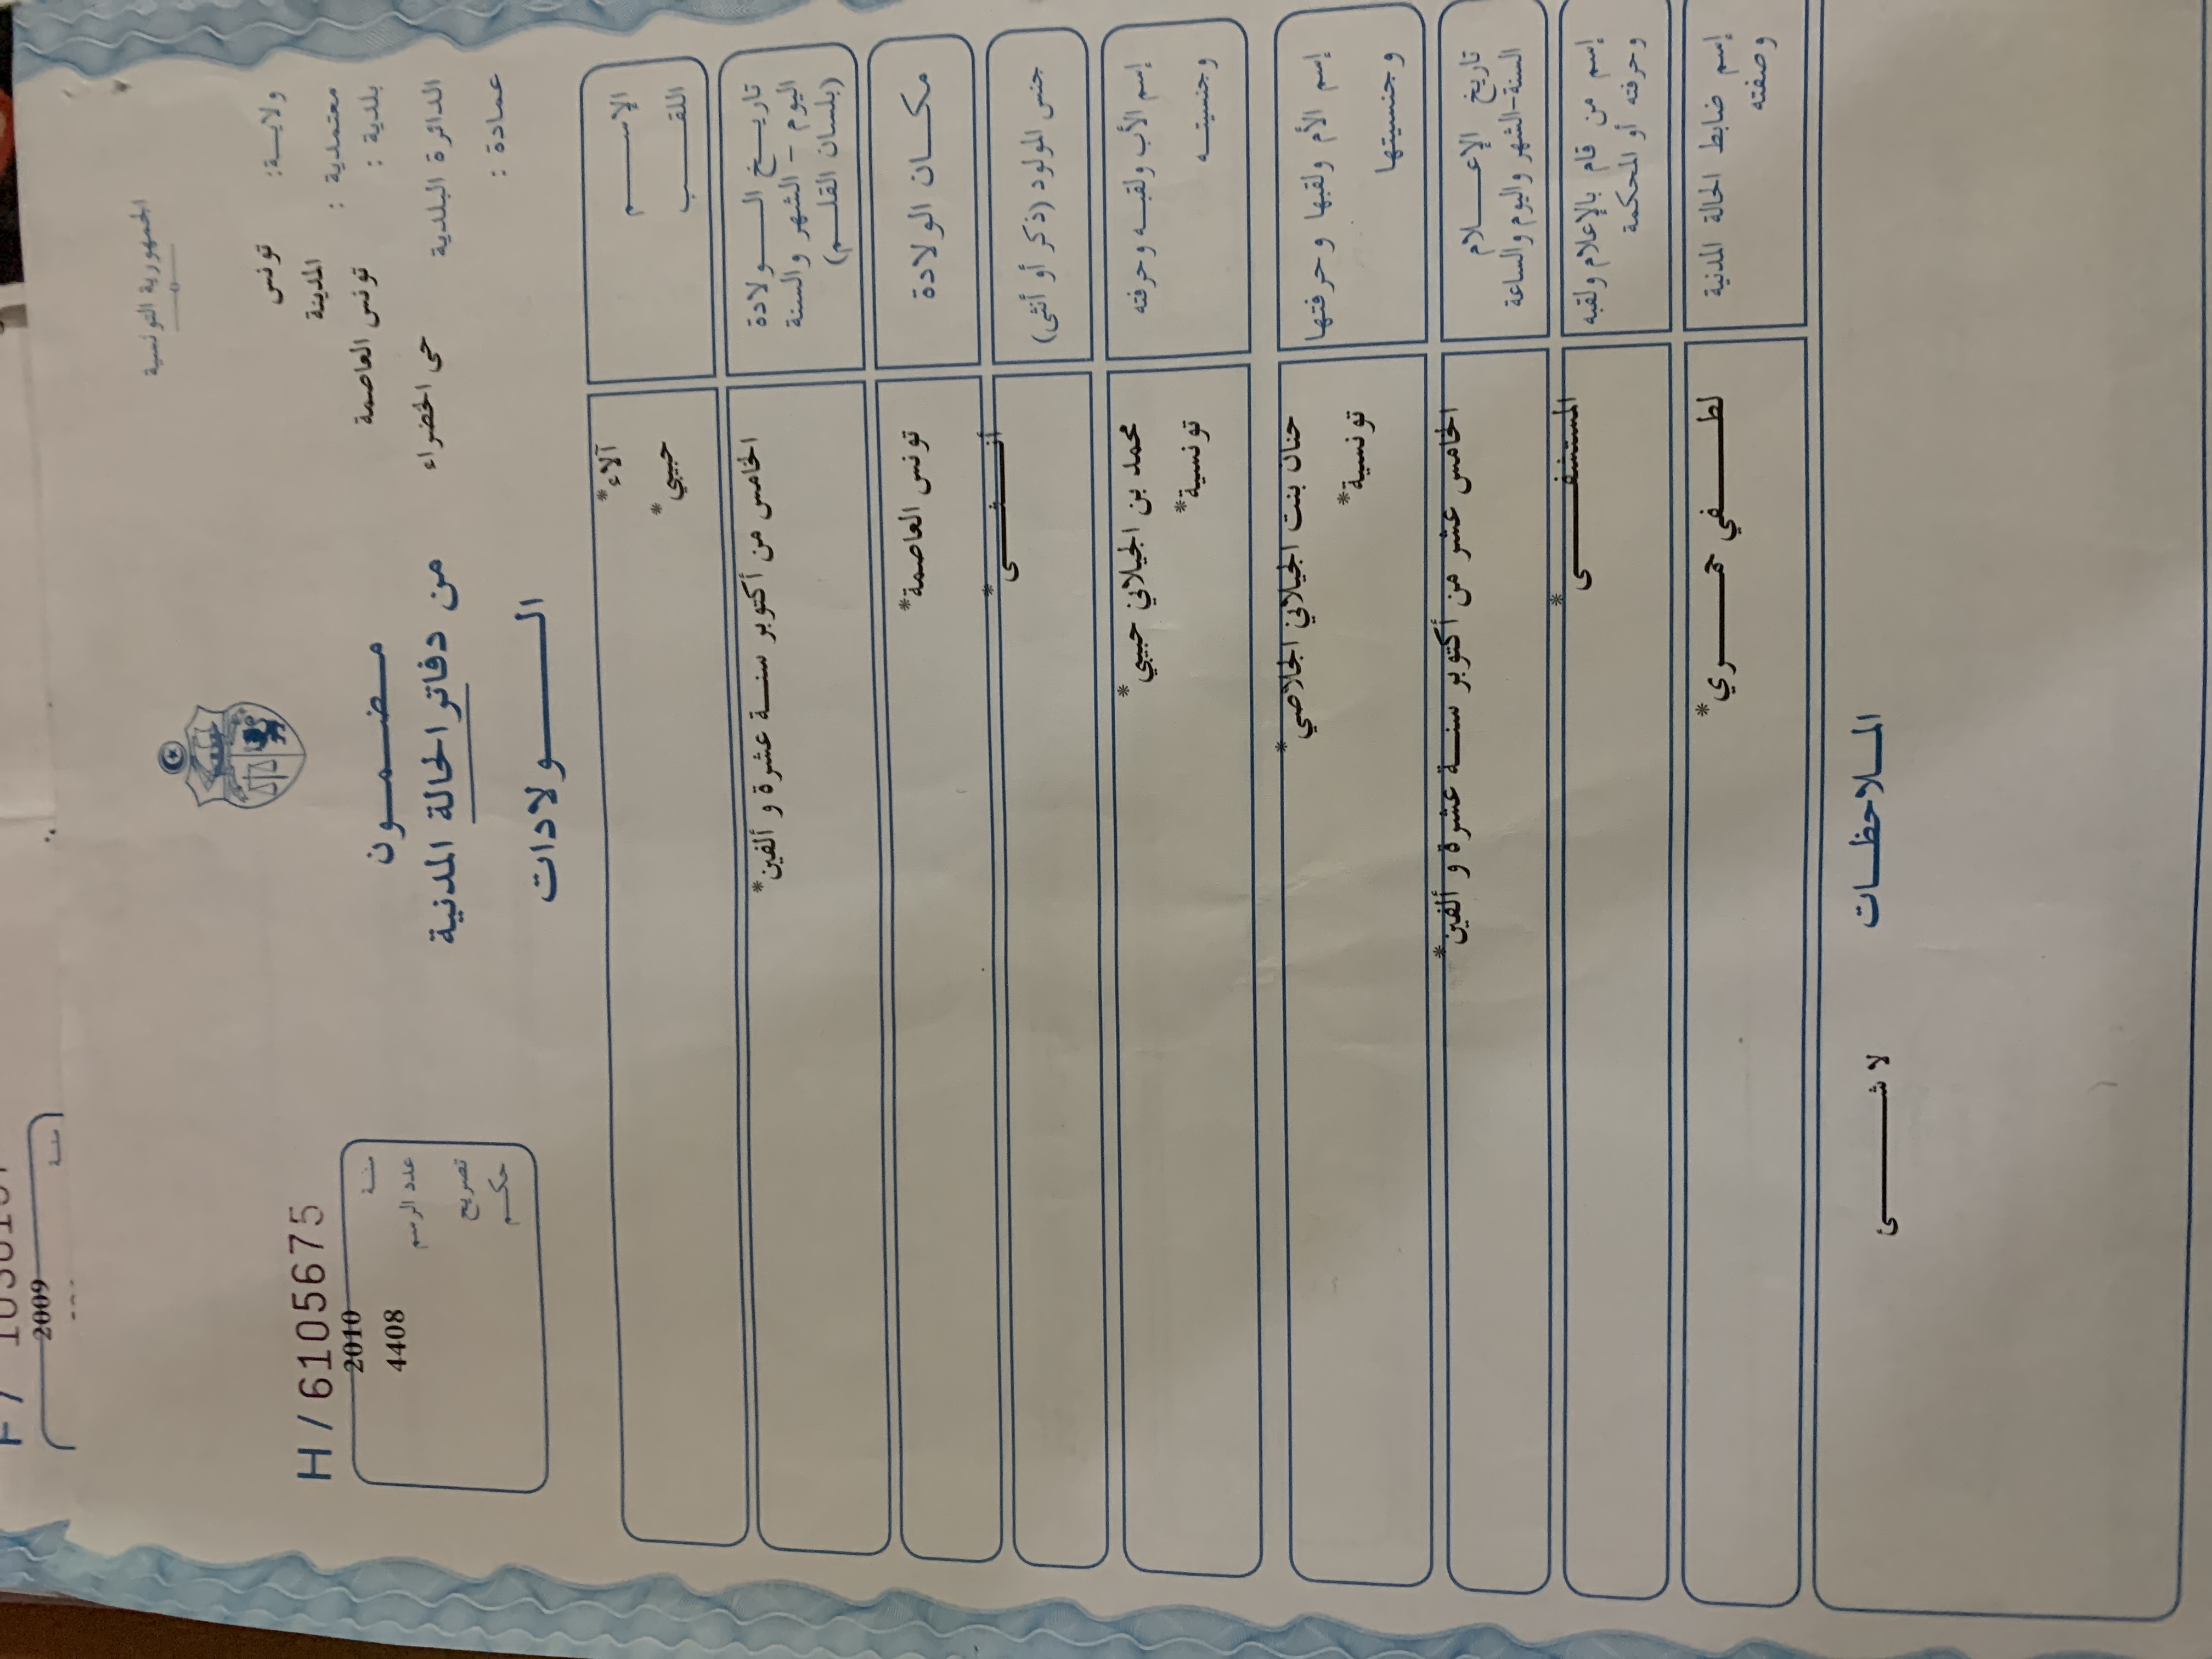 الجمهورية التونسية
ولاية: تونس
معتمدية : المدينة
بلدية : تونس العاصمة
الدائرة البلدية حى الخضراء
عمادة :
مضمون
من دفاتر الحالة المدنية
الولادات
H/6105675
سنة 2010
عدد الرسم 4408
تصريح
حكم
الإسم آلاء*
اللقب حبيبي*
تاريخ الولادة
اليوم - الشهر والسنة
(بلسان القلم)
الخامس من أكتوبر سنة عشرة و ألفين*
مكان الولادة تونس العاصمة*
جنس المولود (ذكر أو أنثى) أنثى*
إسم الأب ولقبه وحرفته محمد بن الجيلاني حبيبي*
وجنسيته تونسية*
إسم الأم ولقبها وحرفتها حنان بنت الجيلاني الجلاصي*
وجنسيتها تونسية*
تاريخ الإعلام
السنة-الشهر واليوم والساعة
الخامس عشر من أكتوبر سنة عشرة و ألفين*
إسم من قام بالإعلام ولقبه
وحرفته أو المحكمة
المستشفى*
إسم ضابط الحالة المدنية
وصفته
لطفي حمري*
الملاحظات
لا شئ
2009
سنة